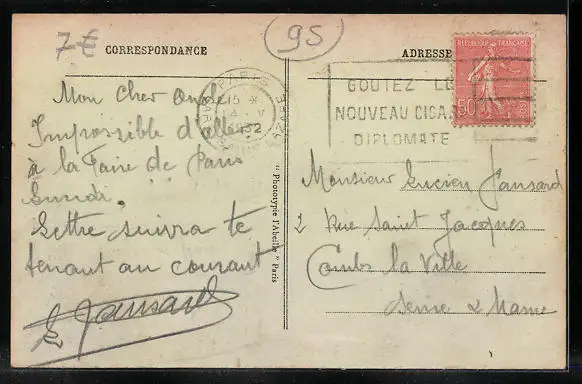 7€
95
CORRESPONDANCE
ADRESSE
REPUBLIQUE FRANÇAISE
50
PARIS
15 *
4 V
1932
GARE
GOUTEZ LE
NOUVEAU CIGA
DIPLOMATE
Mon cher oncle
Impossible d'aller
à la Foire de Paris
Lundi.
Lettre suivra te
tenant au courant
L Jansard
" Phototypie l'Abeille " Paris
Monsieur Lucien Jansard
2 Rue Saint Jacques
Combs la Ville
Seine & Marne